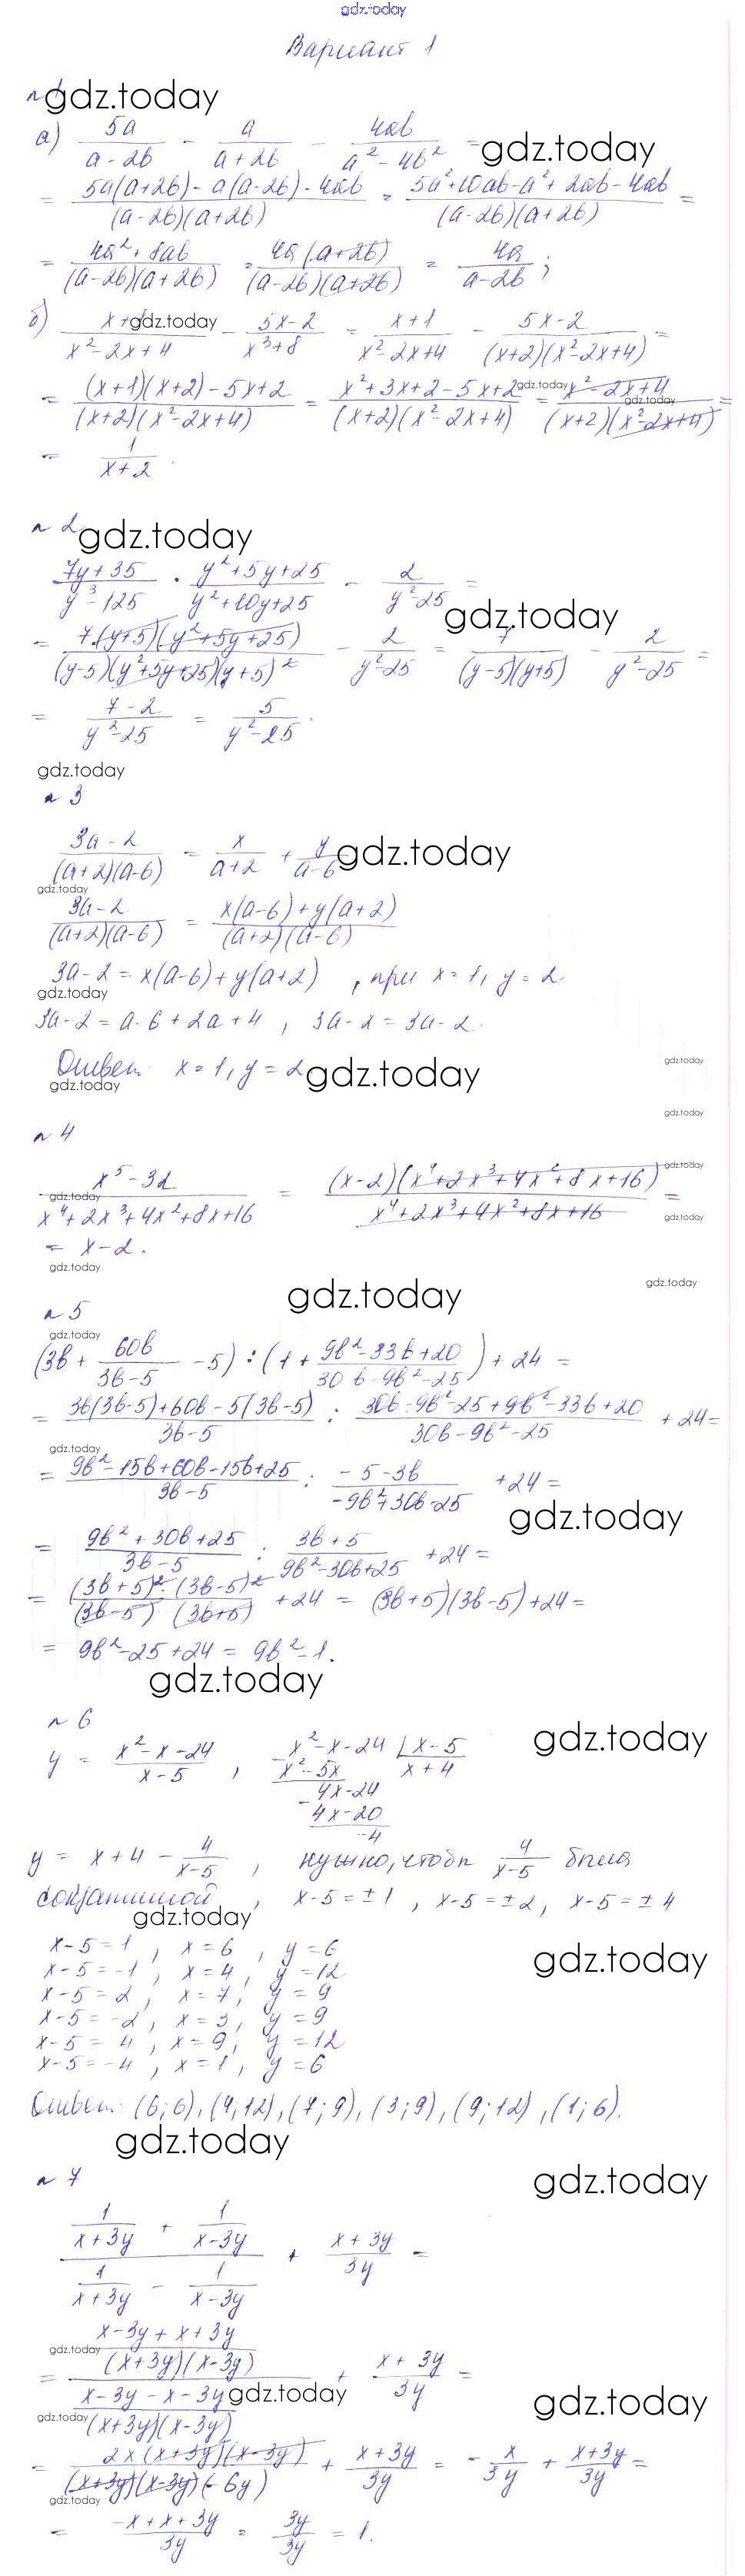 gdz.today
Вариант 1
n 1 gdz.today
а) 5a/(a-2b) - a/(a+2b) - 4ab/(a²-4b²) = gdz.today
= (5a(a+2b)-a(a-2b)-4ab)/((a-2b)(a+2b)) = (5a²+10ab-a²+2ab-4ab)/((a-2b)(a+2b)) =
= (4a²+8ab)/((a-2b)(a+2b)) = (4a(a+2b))/((a-2b)(a+2b)) = 4a/(a-2b);
б) (x+1)/(x²-2x+4) - (5x-2)/(x³+8) = (x+1)/(x²-2x+4) - (5x-2)/((x+2)(x²-2x+4)) =
gdz.today
= ((x+1)(x+2)-5x+2)/((x+2)(x²-2x+4)) = (x²+3x+2-5x+2)/((x+2)(x²-2x+4)) = (x²-2x+4)/((x+2)(x²-2x+4)) =
gdz.today
gdz.today
= 1/(x+2).
n 2 gdz.today
(7y+35)/(y³-125) · (y²+5y+25)/(y²+10y+25) - 2/(y²-25) =
gdz.today
= (7·(y+5)(y²+5y+25))/((y-5)(y²+5y+25)(y+5)²) - 2/(y²-25) = 7/((y-5)(y+5)) - 2/(y²-25) =
= (7-2)/(y²-25) = 5/(y²-25).
gdz.today
n 3
(3a-2)/((a+2)(a-6)) = x/(a+2) + y/(a-6) gdz.today
gdz.today
(3a-2)/((a+2)(a-6)) = (x(a-6)+y(a+2))/((a+2)(a-6))
3a-2=x(a-6)+y(a+2), при x=1, y=2
gdz.today
3a-2=a-6+2a+4, 3a-2=3a-2.
Ответ: x=1, y=2 gdz.today
gdz.today
gdz.today
gdz.today
n 4
(x⁵-32)/(x⁴+2x³+4x²+8x+16) = ((x-2)(x⁴+2x³+4x²+8x+16))/(x⁴+2x³+4x²+8x+16) =
gdz.today
gdz.today
gdz.today
= x-2.
gdz.today
gdz.today
gdz.today
n 5
gdz.today
(3b + 60b/(3b-5) - 5) : (1 + (9b²-33b+20)/(30b-9b²-25)) + 24 =
= (3b(3b-5)+60b-5(3b-5))/(3b-5) : (30b-9b²-25+9b²-33b+20)/(30b-9b²-25) + 24 =
gdz.today
= (9b²-15b+60b-15b+25)/(3b-5) : (-5-3b)/(-9b²+30b-25) + 24 =
gdz.today
= (9b²+30b+25)/(3b-5) : (3b+5)/(9b²-30b+25) + 24 =
= ((3b+5)²·(3b-5)²)/((3b-5)(3b+5)) + 24 = (3b+5)(3b-5)+24 =
= 9b²-25+24 = 9b²-1.
gdz.today
n 6
gdz.today
y = (x²-x-24)/(x-5), x²-x-24 | x-5
x²-5x x+4
4x-24
4x-20
-4
y = x+4 - 4/(x-5), нужно, чтобы 4/(x-5) была
x-5=±1, x-5=±2, x-5=±4
gdz.today
x-5=1, x=6, y=6
gdz.today
x-5=-1, x=4, y=12
x-5=2, x=7, y=9
x-5=-2, x=3, y=9
x-5=4, x=9, y=12
x-5=-4, x=1, y=6
Ответ: (6;6), (4;12), (7;9), (3;9), (9;12), (1;6).
gdz.today
n 7
gdz.today
(1/(x+3y) + 1/(x-3y))/(1/(x+3y) - 1/(x-3y)) + (x+3y)/3y =
= ((x-3y+x+3y)/((x+3y)(x-3y)))/((x-3y-x-3y)/((x+3y)(x-3y))) + (x+3y)/3y =
gdz.today
gdz.today
gdz.today
gdz.today
= (2x(x+3y)(x-3y))/((x+3y)(x-3y)(-6y)) + (x+3y)/3y = -x/3y + (x+3y)/3y =
gdz.today
= (-x+x+3y)/3y = 3y/3y = 1.